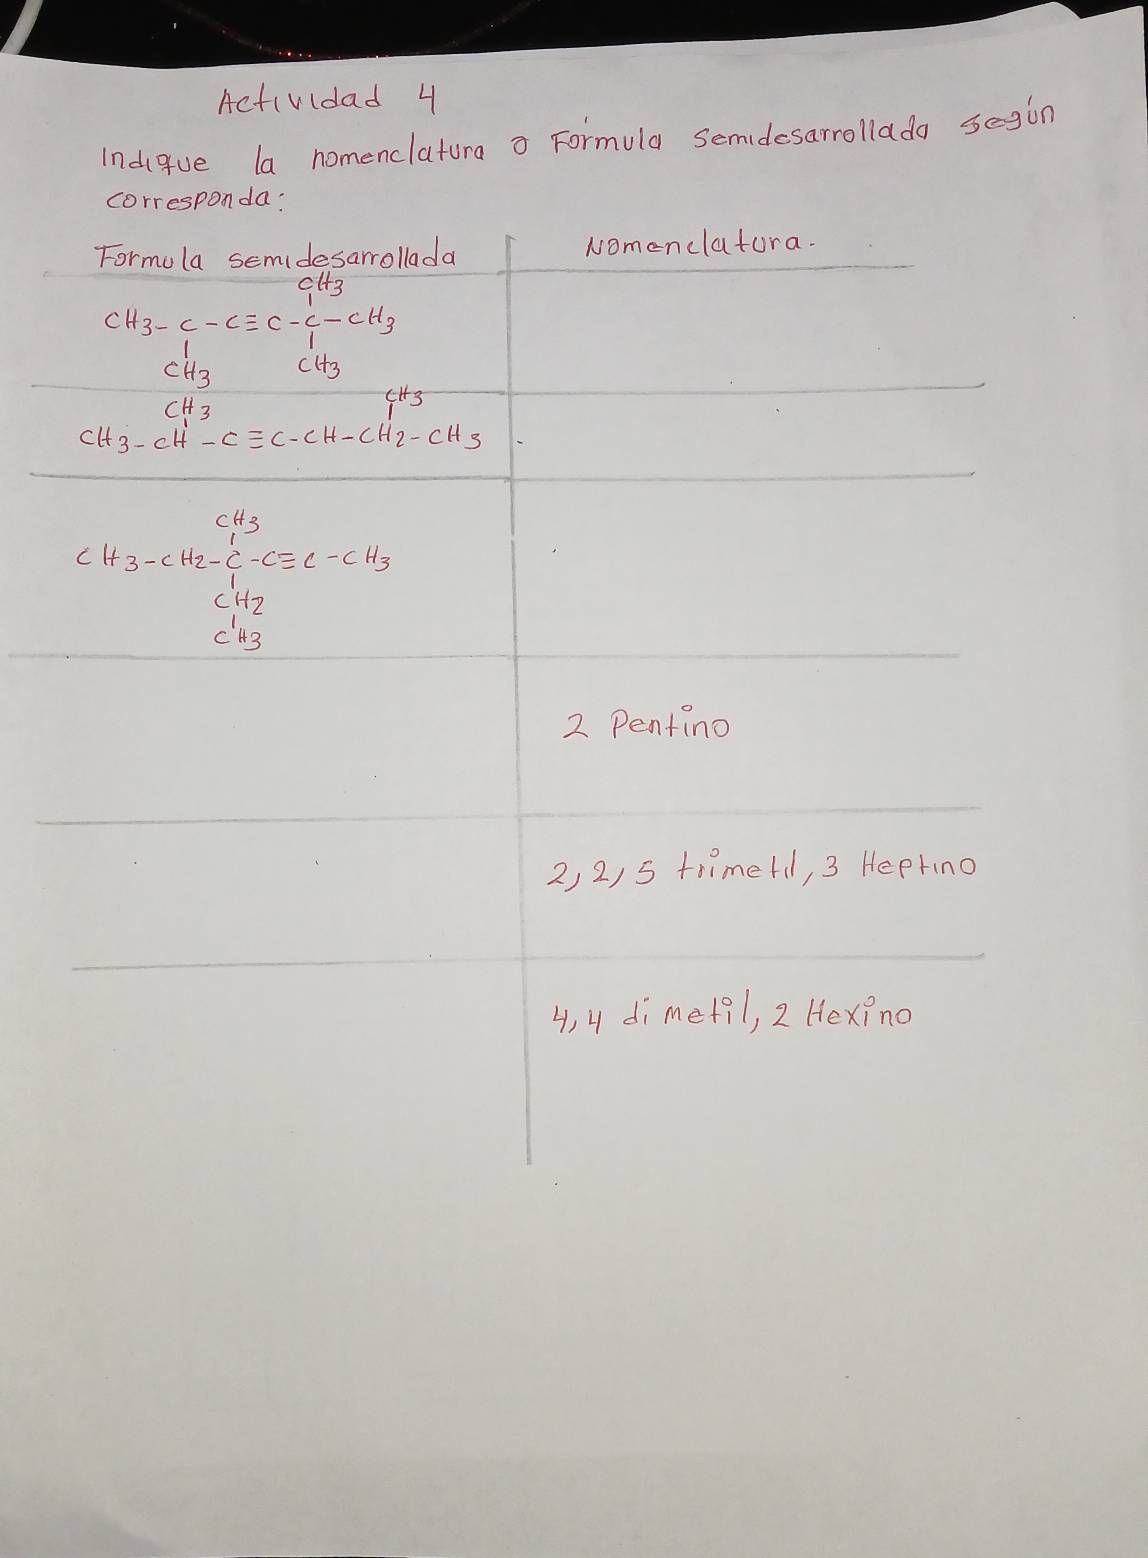 Actividad 4
Indique la nomenclatura o Fórmula semidesarrollada según
corresponda:
Formula semidesarrollada Nomenclatura.
CH3
CH3-C-C≡C-C-CH3
CH3 CH3
CH3 CH3
CH3-CH-C≡C-CH-CH2-CH3
CH3
CH3-CH2-C-C≡C-CH3
CH2
CH3
2 Pentino
2,2,5 trimetil, 3 Heptino
4,4 dimetil, 2 Hexino